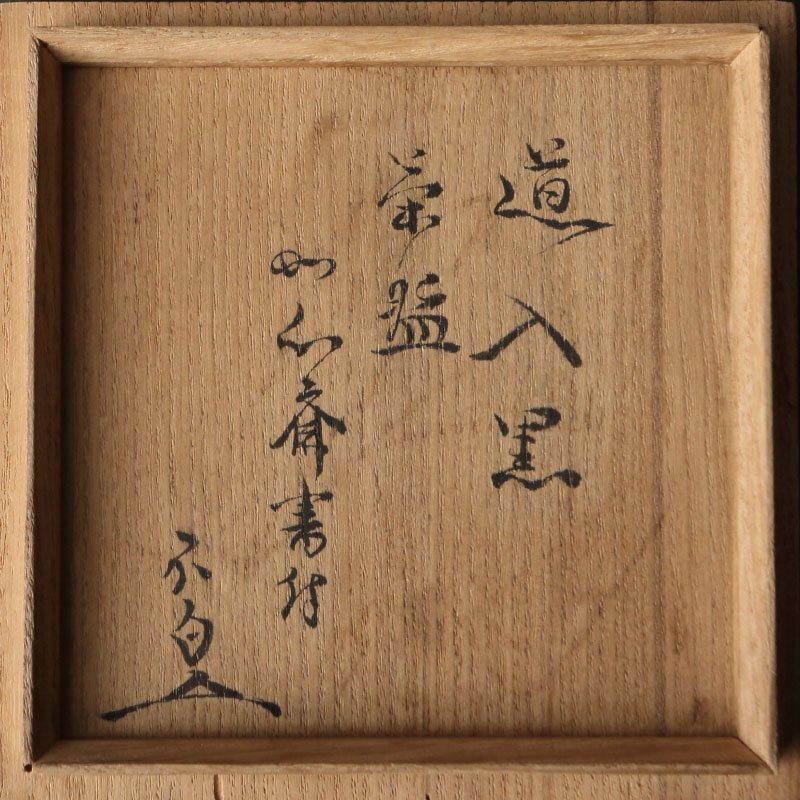 道入黒
茶盌
如心斎書付
不白